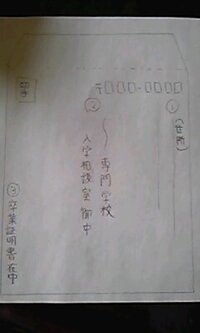 〒□□□-□□□□
切手
①
(住所)
②
〜専門学校
入学相談室 御中
③卒業証明書在中